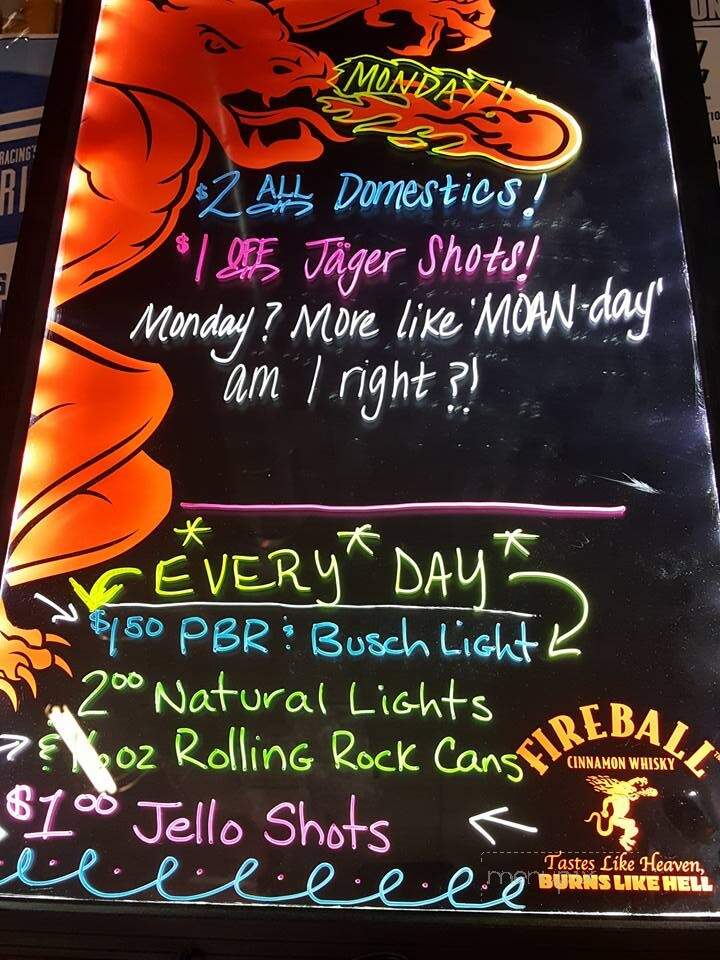 MONDAY!
$2 ALL Domestics!
$1 OFF Jäger Shots!
Monday? More like 'MOAN-day'
am I right?!
*EVERY* DAY*
$1.50 PBR & Busch Light
2.00 Natural Lights
& 16oz Rolling Rock Cans
$1.00 Jello Shots
FIREBALL
CINNAMON WHISKY
Tastes Like Heaven,
BURNS LIKE HELL
RACING'S